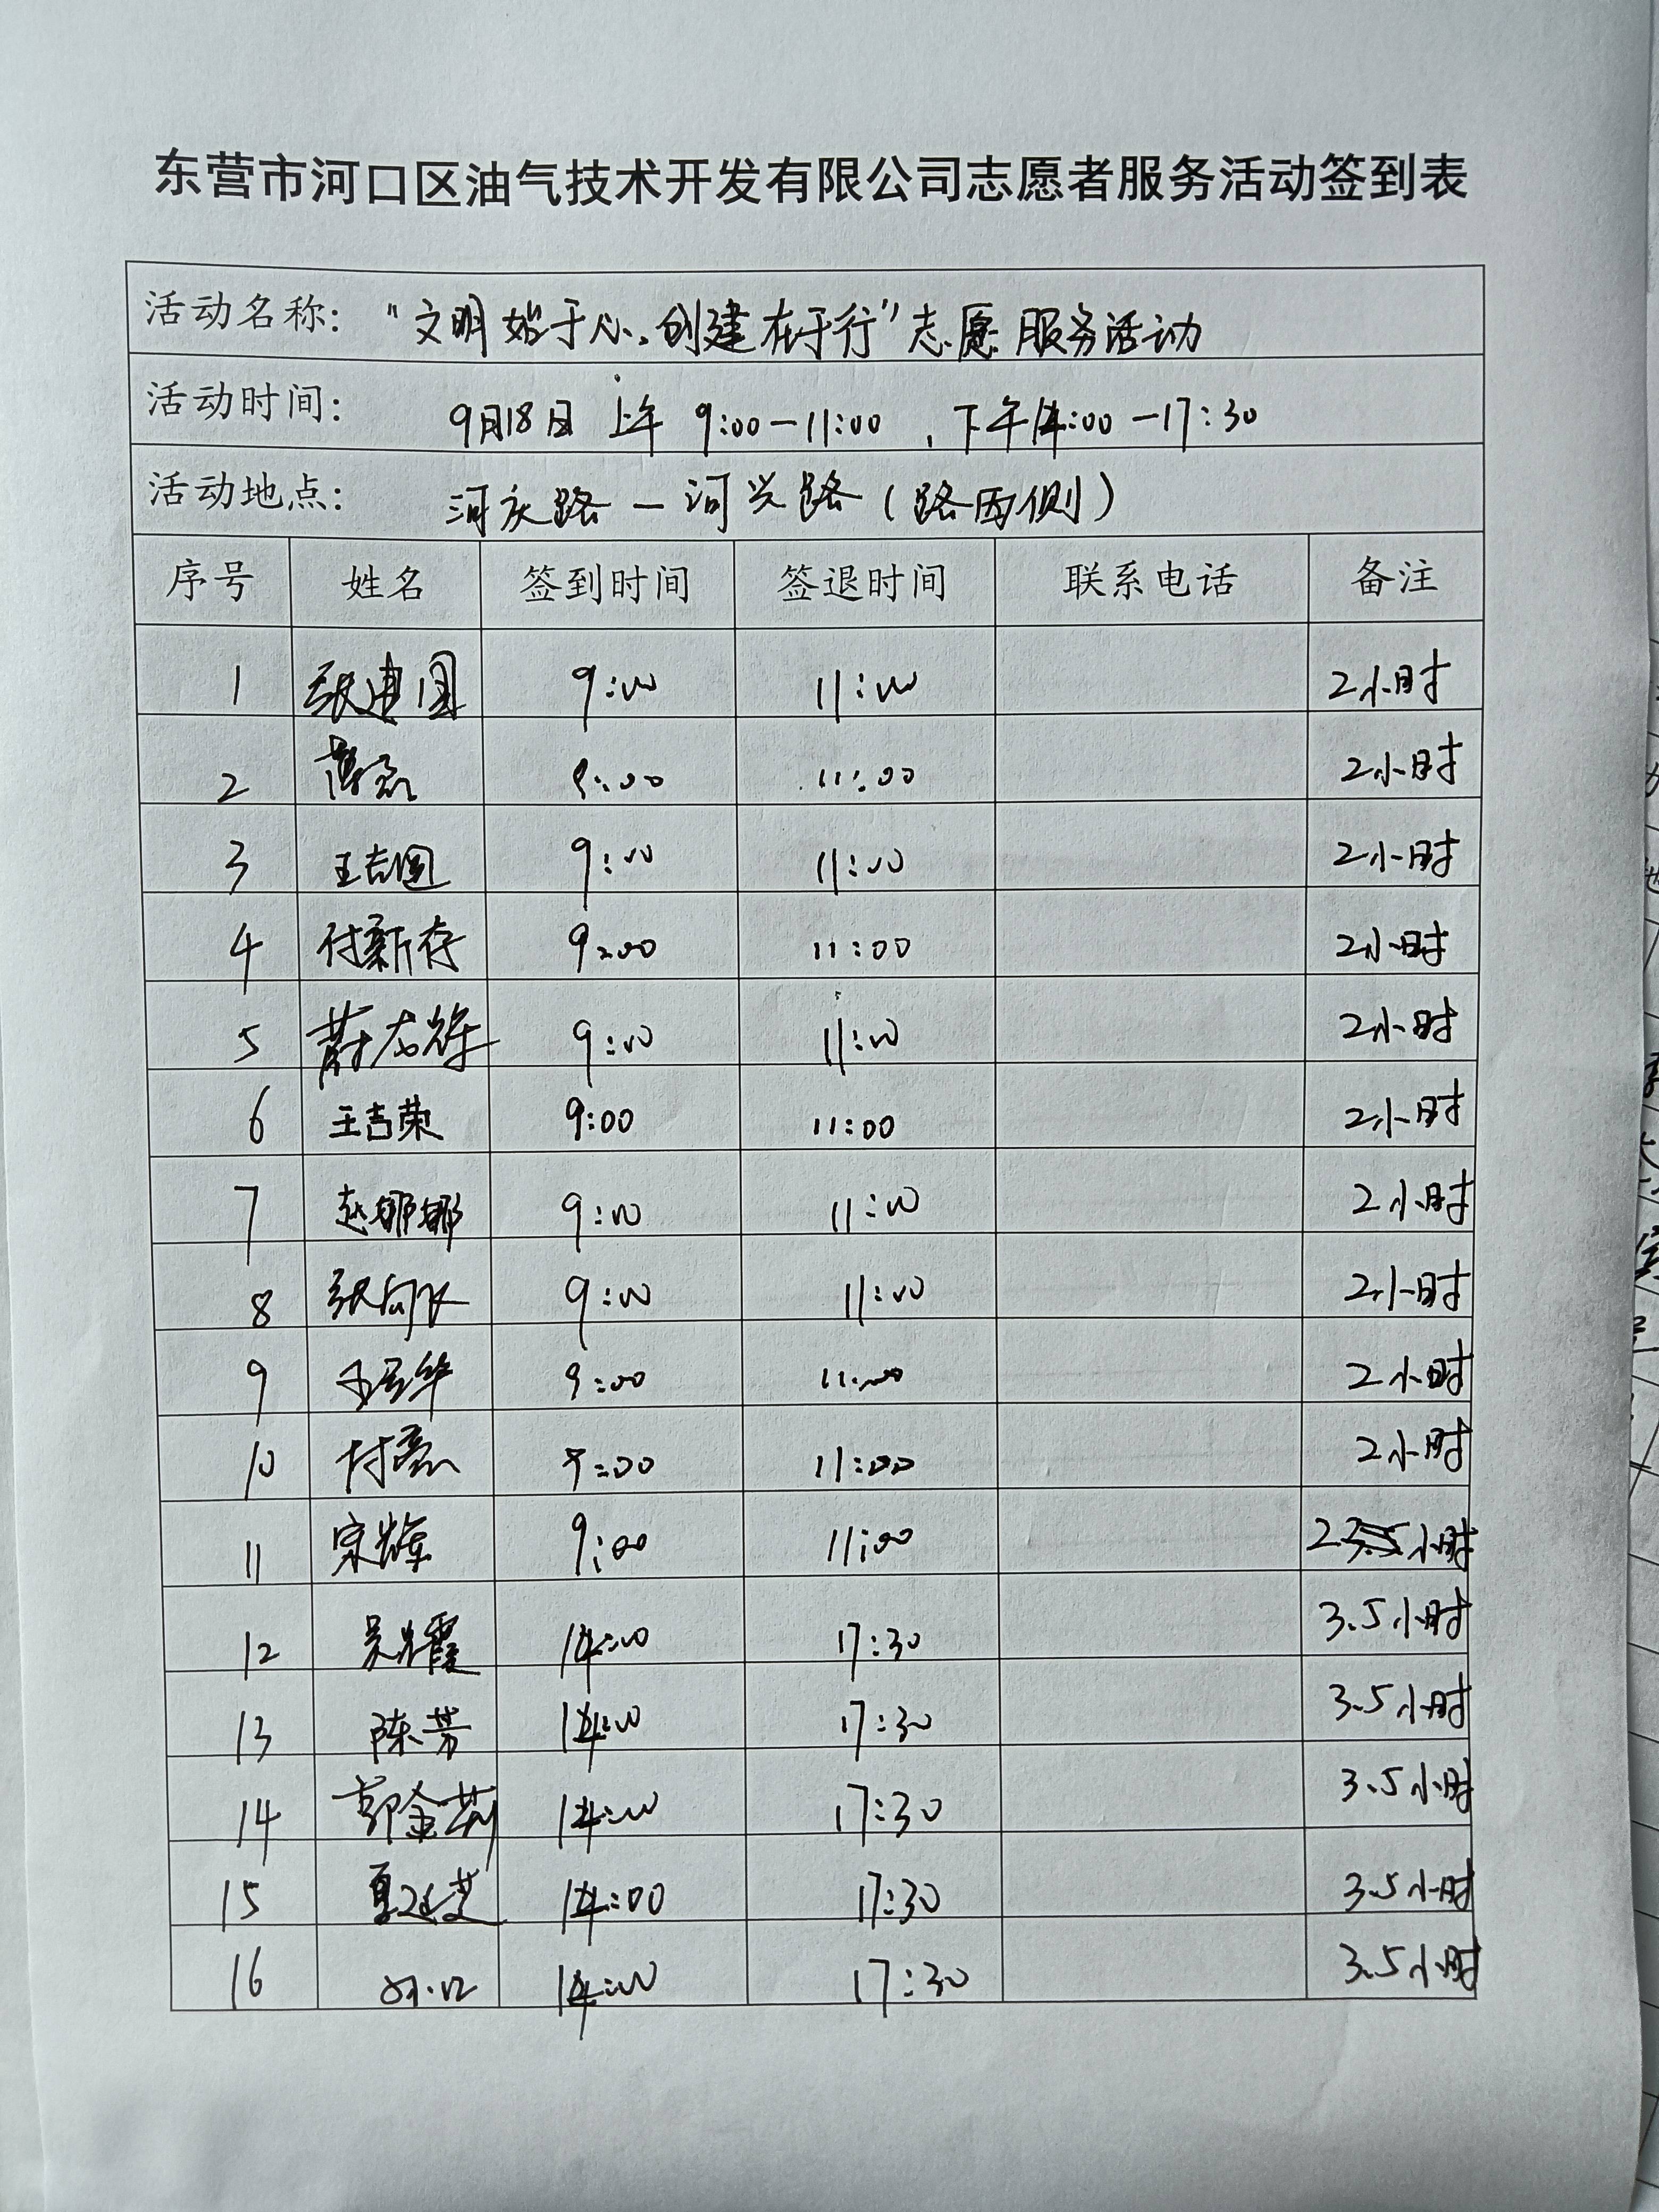 东营市河口区油气技术开发有限公司志愿者服务活动签到表
活动名称： “文明始于心、创建在于行”志愿服务活动
活动时间： 9月18日 上午 9:00—11:00 ，下午14:00—17:30
活动地点： 河庆路—河兴路（路西侧）
序号 姓名 签到时间 签退时间 联系电话 备注
1 张建国 9:00 11:00 2小时
2 9:00 11:00 2小时
3 王志国 9:00 11:00 2小时
4 付新存 9:00 11:00 2小时
5 9:00 11:00 2小时
6 王吉荣 9:00 11:00 2小时
7 赵娜娜 9:00 11:00 2小时
8 张向 9:00 11:00 2小时
9 9:00 11:00 2小时
10 付磊 9:00 11:00 2小时
11 宋辉 9:00 11:00 2小时
12 吴 霞 14:00 17:30 3.5小时
13 陈芳 14:00 17:30 3.5小时
14 郭金莉 14:00 17:30 3.5小时
15 夏延芝 14:00 17:30 3.5小时
16 14:00 17:30 3.5小时